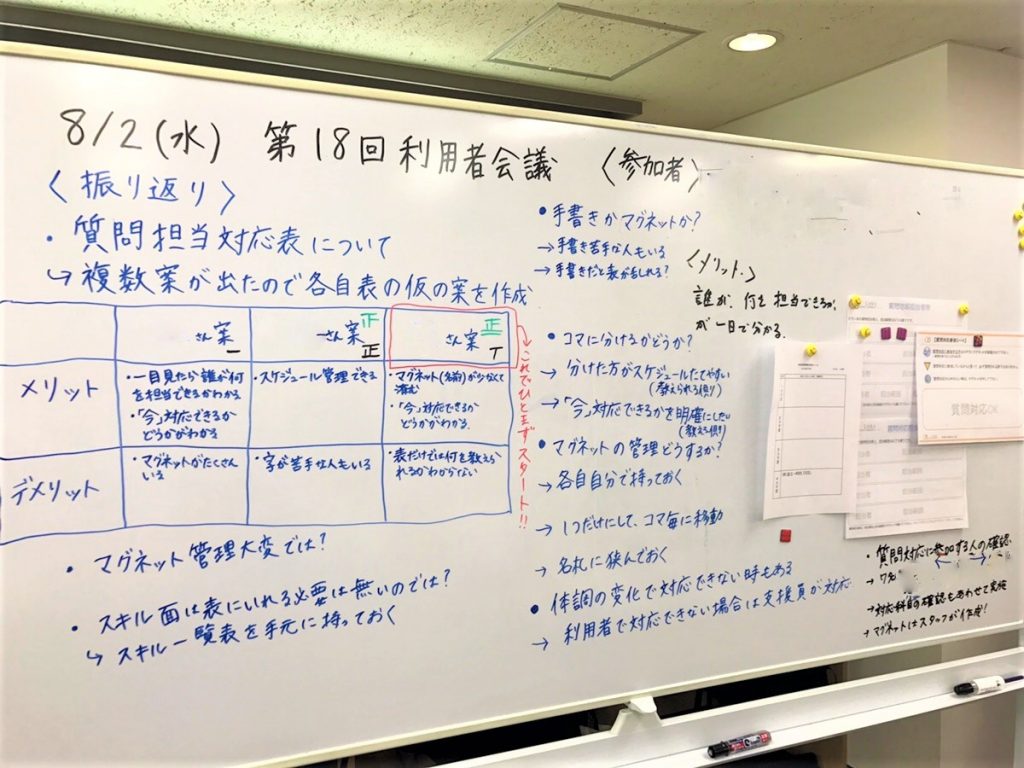 8/2(水) 第18回利用者会議 〈参加者〉
〈振り返り〉
・質問担当対応表について
↳複数案が出たので各自表の仮の案を作成
さん案 一
さん案 正 正
さん案 正 T
メリット
・一目見たら誰が何
を担当できるかわかる
・「今」対応できるか
どうかがわかる
・スケジュール管理できる
・マグネット(名前)が少なくて
済む
・「今」対応できるか
どうかがわかる
デメリット
・マグネットがたくさん
いる
・字が苦手な人もいる
・表だけでは何を教えら
れるのかわからない
→これでひとまずスタート!!
・マグネット管理大変では?
・スキル面は表にいれる必要は無いのでは?
↳スキル一覧表を手元に持っておく
•手書きかマグネットか?
→手書き苦手な人もいる
→手書きだと表が乱れる?
〈メリット〉
誰が、何を担当できるか、
が一日で分かる。
•コマに分けるかどうか?
→分けた方がスケジュールたてやすい
(教えられる側)
→「今」対応できるかを明確にしたい
(教える側)
•マグネットの管理どうするか?
→各自自分で持っておく
→1つだけにして、コマ毎に移動
→名札に挟んでおく
•体調の変化で対応できない時もある
→利用者で対応できない場合は支援員が対応
質問対応OK
・質問対応に参加する人の確認
→7名
→対応科目の確認もあわせて実施
→マグネットはスタッフが作成!